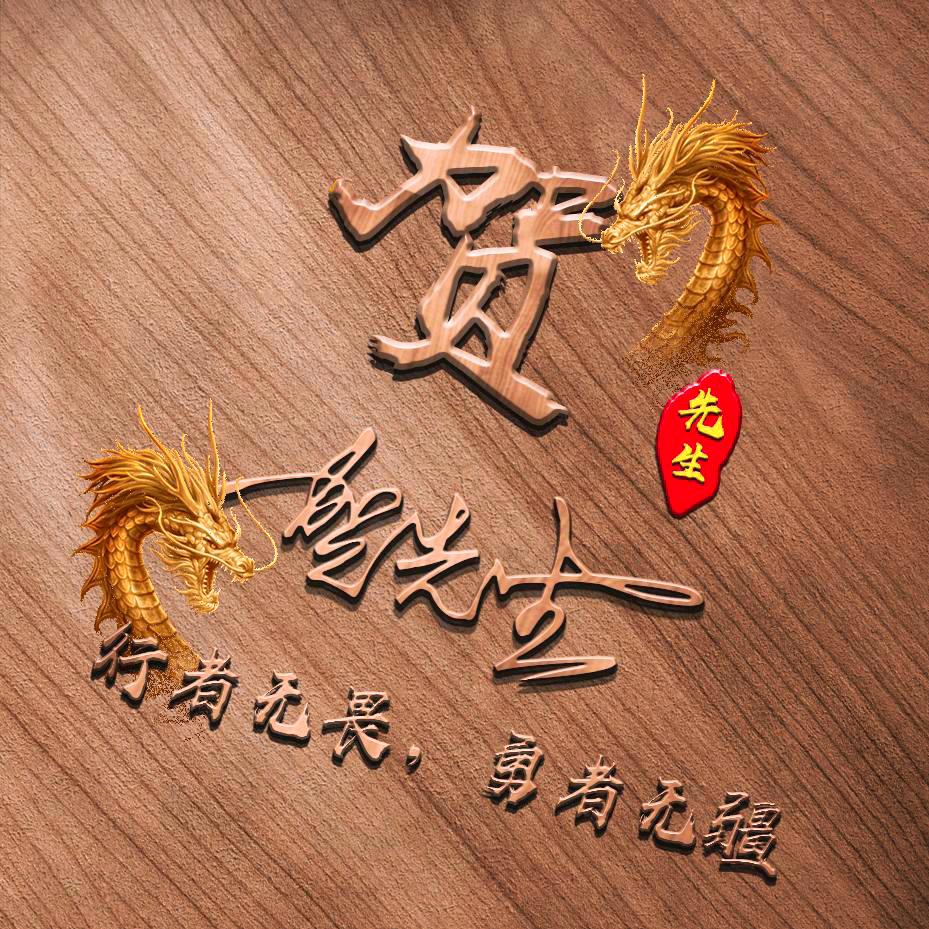 贺
先生
贺先生
行者无畏，勇者无疆